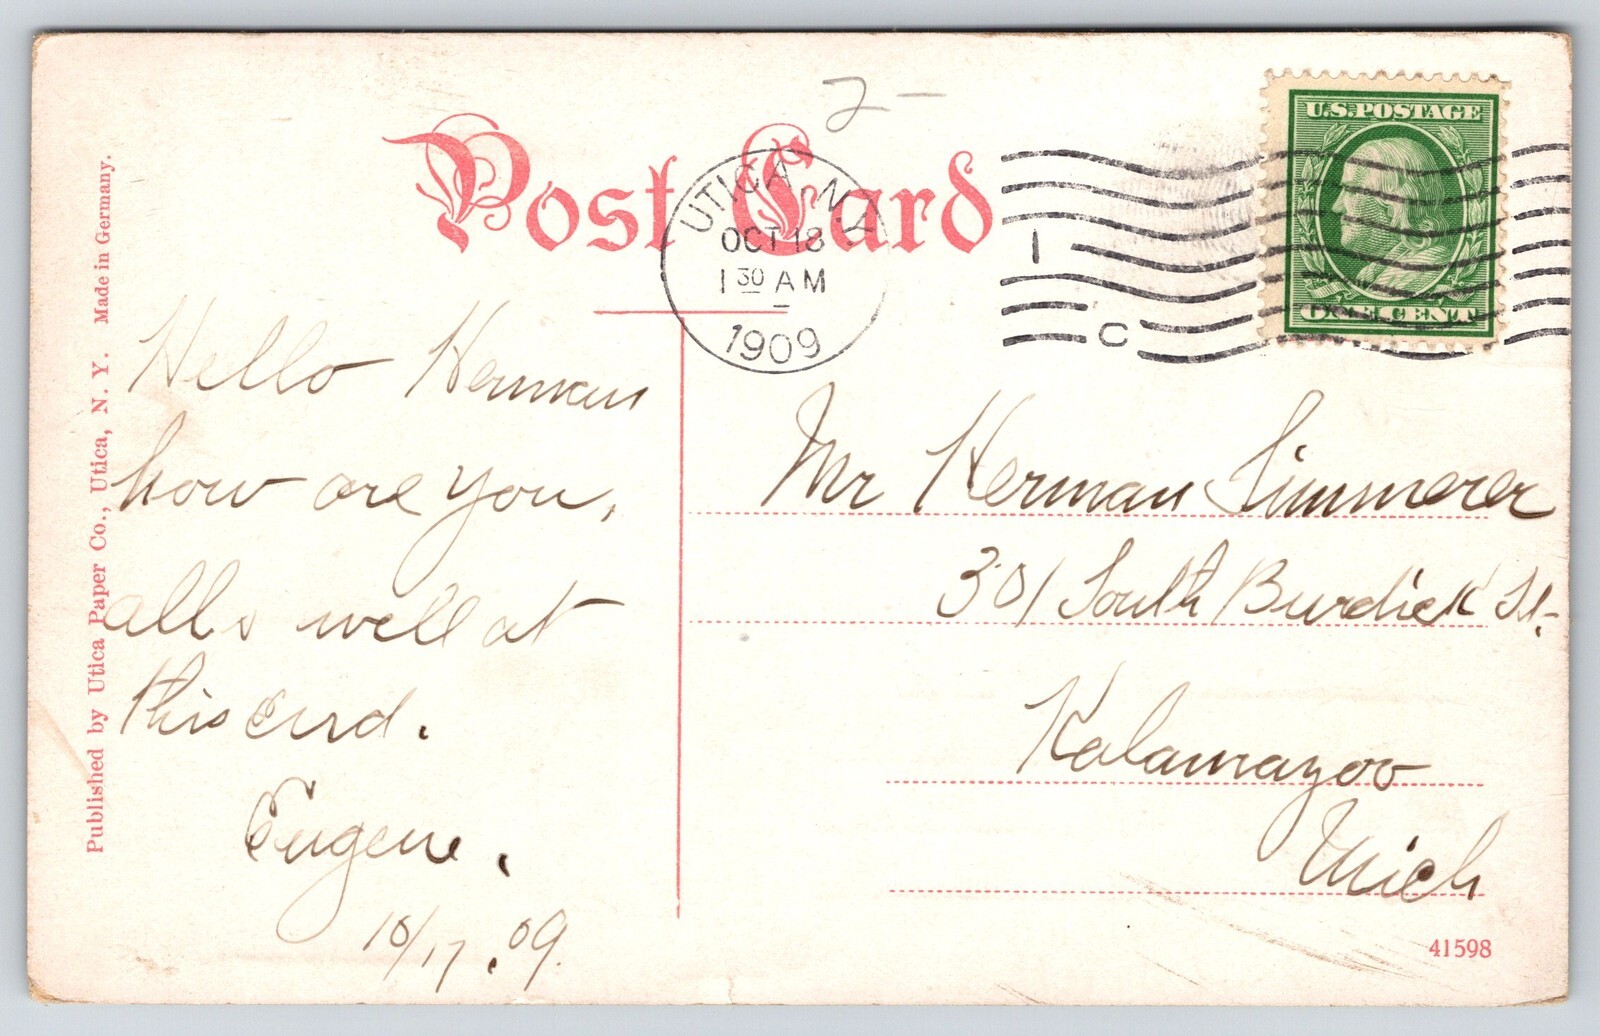 2 –
Post Card
UTICA, N.Y.
OCT 18
1 30 AM
1909
1
C
U.S. POSTAGE
ONE CENT
Published by Utica Paper Co., Utica, N. Y. Made in Germany.
Hello Herman
how are you,
alls well at
this end.
Eugene.
10/17.09.
Mr Herman Simmerer
301 South Burdick St.
Kalamazoo
Mich
41598